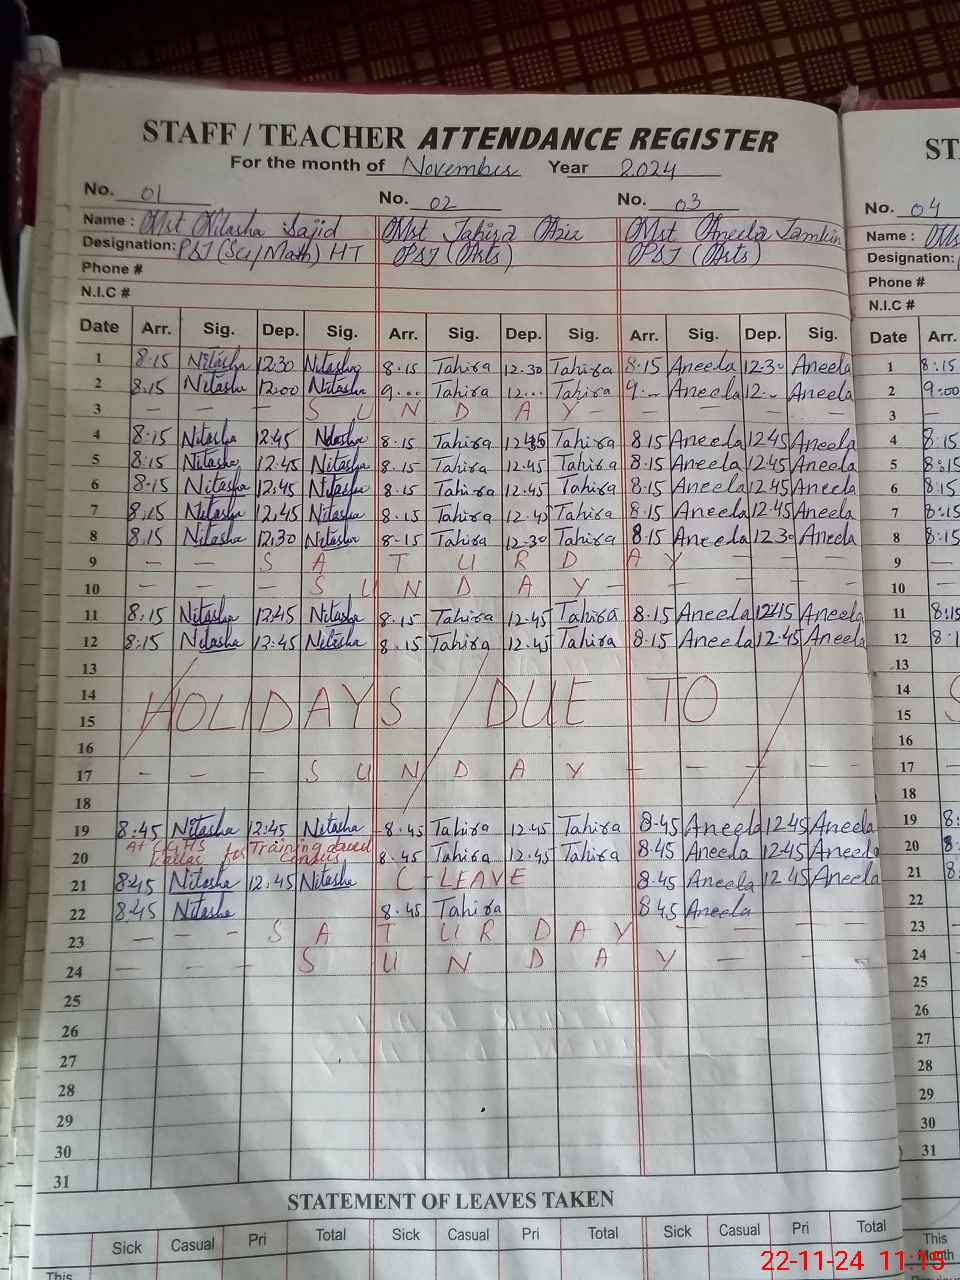 STAFF / TEACHER ATTENDANCE REGISTER
For the month of November Year 2024
No. 01 No. 02 No. 03 No. 04
Name : Mst Nitasha Sajid Mst Tahira Mst Aneela Name :
Designation: PST (Sci/Math) HT PST (Arts) PST (Arts) Designation:
Phone # Phone #
N.I.C # N.I.C #
Date Arr. Sig. Dep. Sig. Arr. Sig. Dep. Sig. Arr. Sig. Dep. Sig. Date Arr.
1 8:15 Nitasha 12:30 Nitasha 8.15 Tahira 12.30 Tahira 8.15 Aneela 12.30 Aneela 1 8:15
2 8:15 Nitasha 12:00 Nitasha 9... Tahira 12... Tahira 9.-- Aneela 12.- Aneela 2 9:00
3 - - - S U N D A Y - - - - - 3 -
4 8:15 Nitasha 12:45 Nitasha 8.15 Tahira 12.45 Tahira 8.15 Aneela 12.45 Aneela 4 8:15
5 8:15 Nitasha 12:45 Nitasha 8.15 Tahira 12.45 Tahira 8.15 Aneela 12.45 Aneela 5 8:15
6 8:15 Nitasha 12:45 Nitasha 8.15 Tahira 12.45 Tahira 8.15 Aneela 12.45 Aneela 6 8:15
7 8:15 Nitasha 12:45 Nitasha 8.15 Tahira 12.45 Tahira 8.15 Aneela 12.45 Aneela 7 8:15
8 8:15 Nitasha 12:30 Nitasha 8-15 Tahira 12-30 Tahira 8.15 Aneela 12.30 Aneela 8 8:15
9 - - S A T U R D A Y - - 9 -
10 - - - S U N D A Y - - - - - 10 -
11 8:15 Nitasha 12:45 Nitasha 8.15 Tahira 12.45 Tahira 8.15 Aneela 12.45 Aneela 11 8:15
12 8:15 Nitasha 12:45 Nitasha 8.15 Tahira 12.45 Tahira 8.15 Aneela 12.45 Aneela 12
13 13
14 HOLIDAYS DUE TO 14
15 15
16 16
17 - - - S U N D A Y - - - - 17 - -
18 18
19 8:45 Nitasha 12:45 Nitasha 8.45 Tahira 12.45 Tahira 8.45 Aneela 12.45 Aneela 19
20 for Training 8.45 Tahira 12.45 Tahira 8.45 Aneela 12.45 Aneela 20
21 8:45 Nitasha 12:45 Nitasha C-LEAVE 8.45 Aneela 12.45 Aneela 21
22 8:45 Nitasha 8.45 Tahira 8.45 Aneela 22
23 - - - S A T U R D A Y - - - 23 - -
24 - - - S U N D A Y - - 24 - -
25 25
26 26
27 27
28 28
29 29
30 30
31 31
STATEMENT OF LEAVES TAKEN
Sick Casual Pri Total Sick Casual Pri Total Sick Casual Pri Total This
This Month
22-11-24 11:15